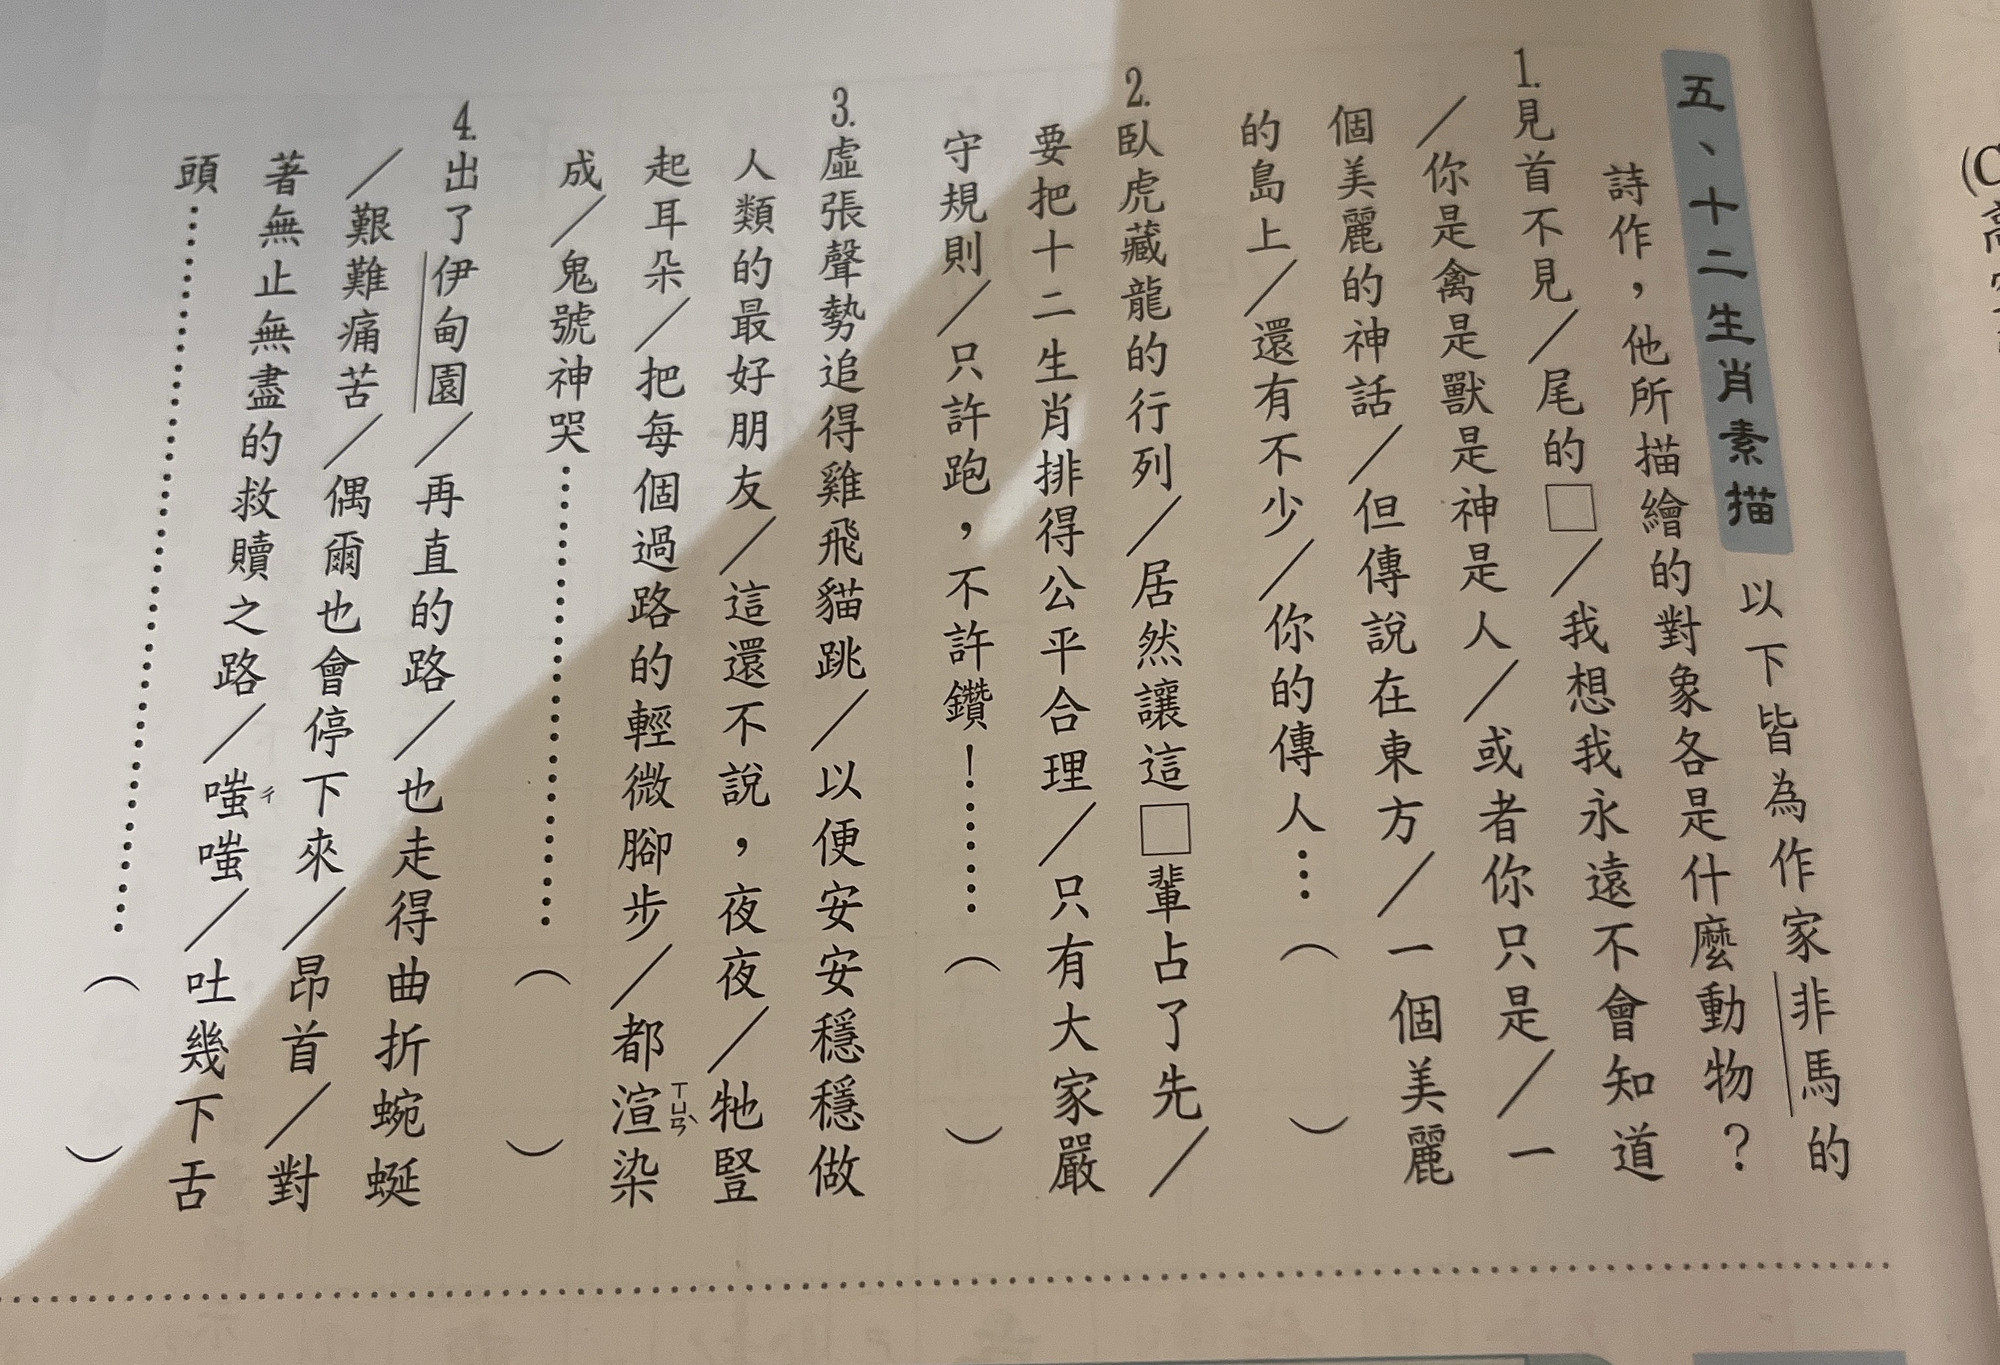 五、十二生肖素描 以下皆為作家非馬的
詩作，他所描繪的對象各是什麼動物？
1.見首不見／尾的□／我想我永遠不會知道
／你是禽是獸是神是人／或者你只是／一
個美麗的神話／但傳說在東方／一個美麗
的島上／還有不少／你的傳人…（ ）
2.臥虎藏龍的行列／居然讓這□輩占了先／
要把十二生肖排得公平合理／只有大家嚴
守規則／只許跑，不許鑽！……（ ）
3.虛張聲勢追得雞飛貓跳／以便安安穩穩做
人類的最好朋友／這還不說，夜夜／牠豎
起耳朵／把每個過路的輕微腳步／都渲ㄒㄩㄢˋ染
成／鬼號神哭………………………（ ）
4.出了伊甸園／再直的路／也走得曲折蜿蜒
／艱難痛苦／偶爾也會停下來／昂首／對
著無止無盡的救贖之路／嗤ㄔ嗤／吐幾下舌
頭……………………………………（ ）